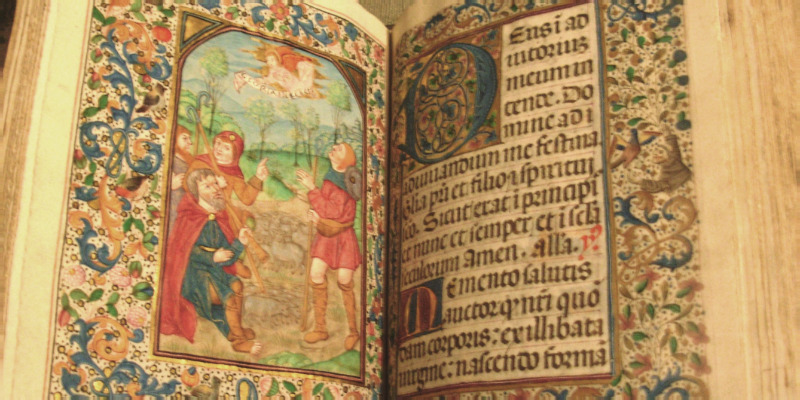 Deus i ad
iutorium
meum in
tende. Do
mine ad i
adiuuandum me festina
Gloria pri et filio i spiritui
sco. Sicut erat i principi
et nunc et semper et i secla
seculorum amen. alla.
Memento salutis
auctor qnti quo
dam corporis: ex illibata
uirgine: nascendo formā